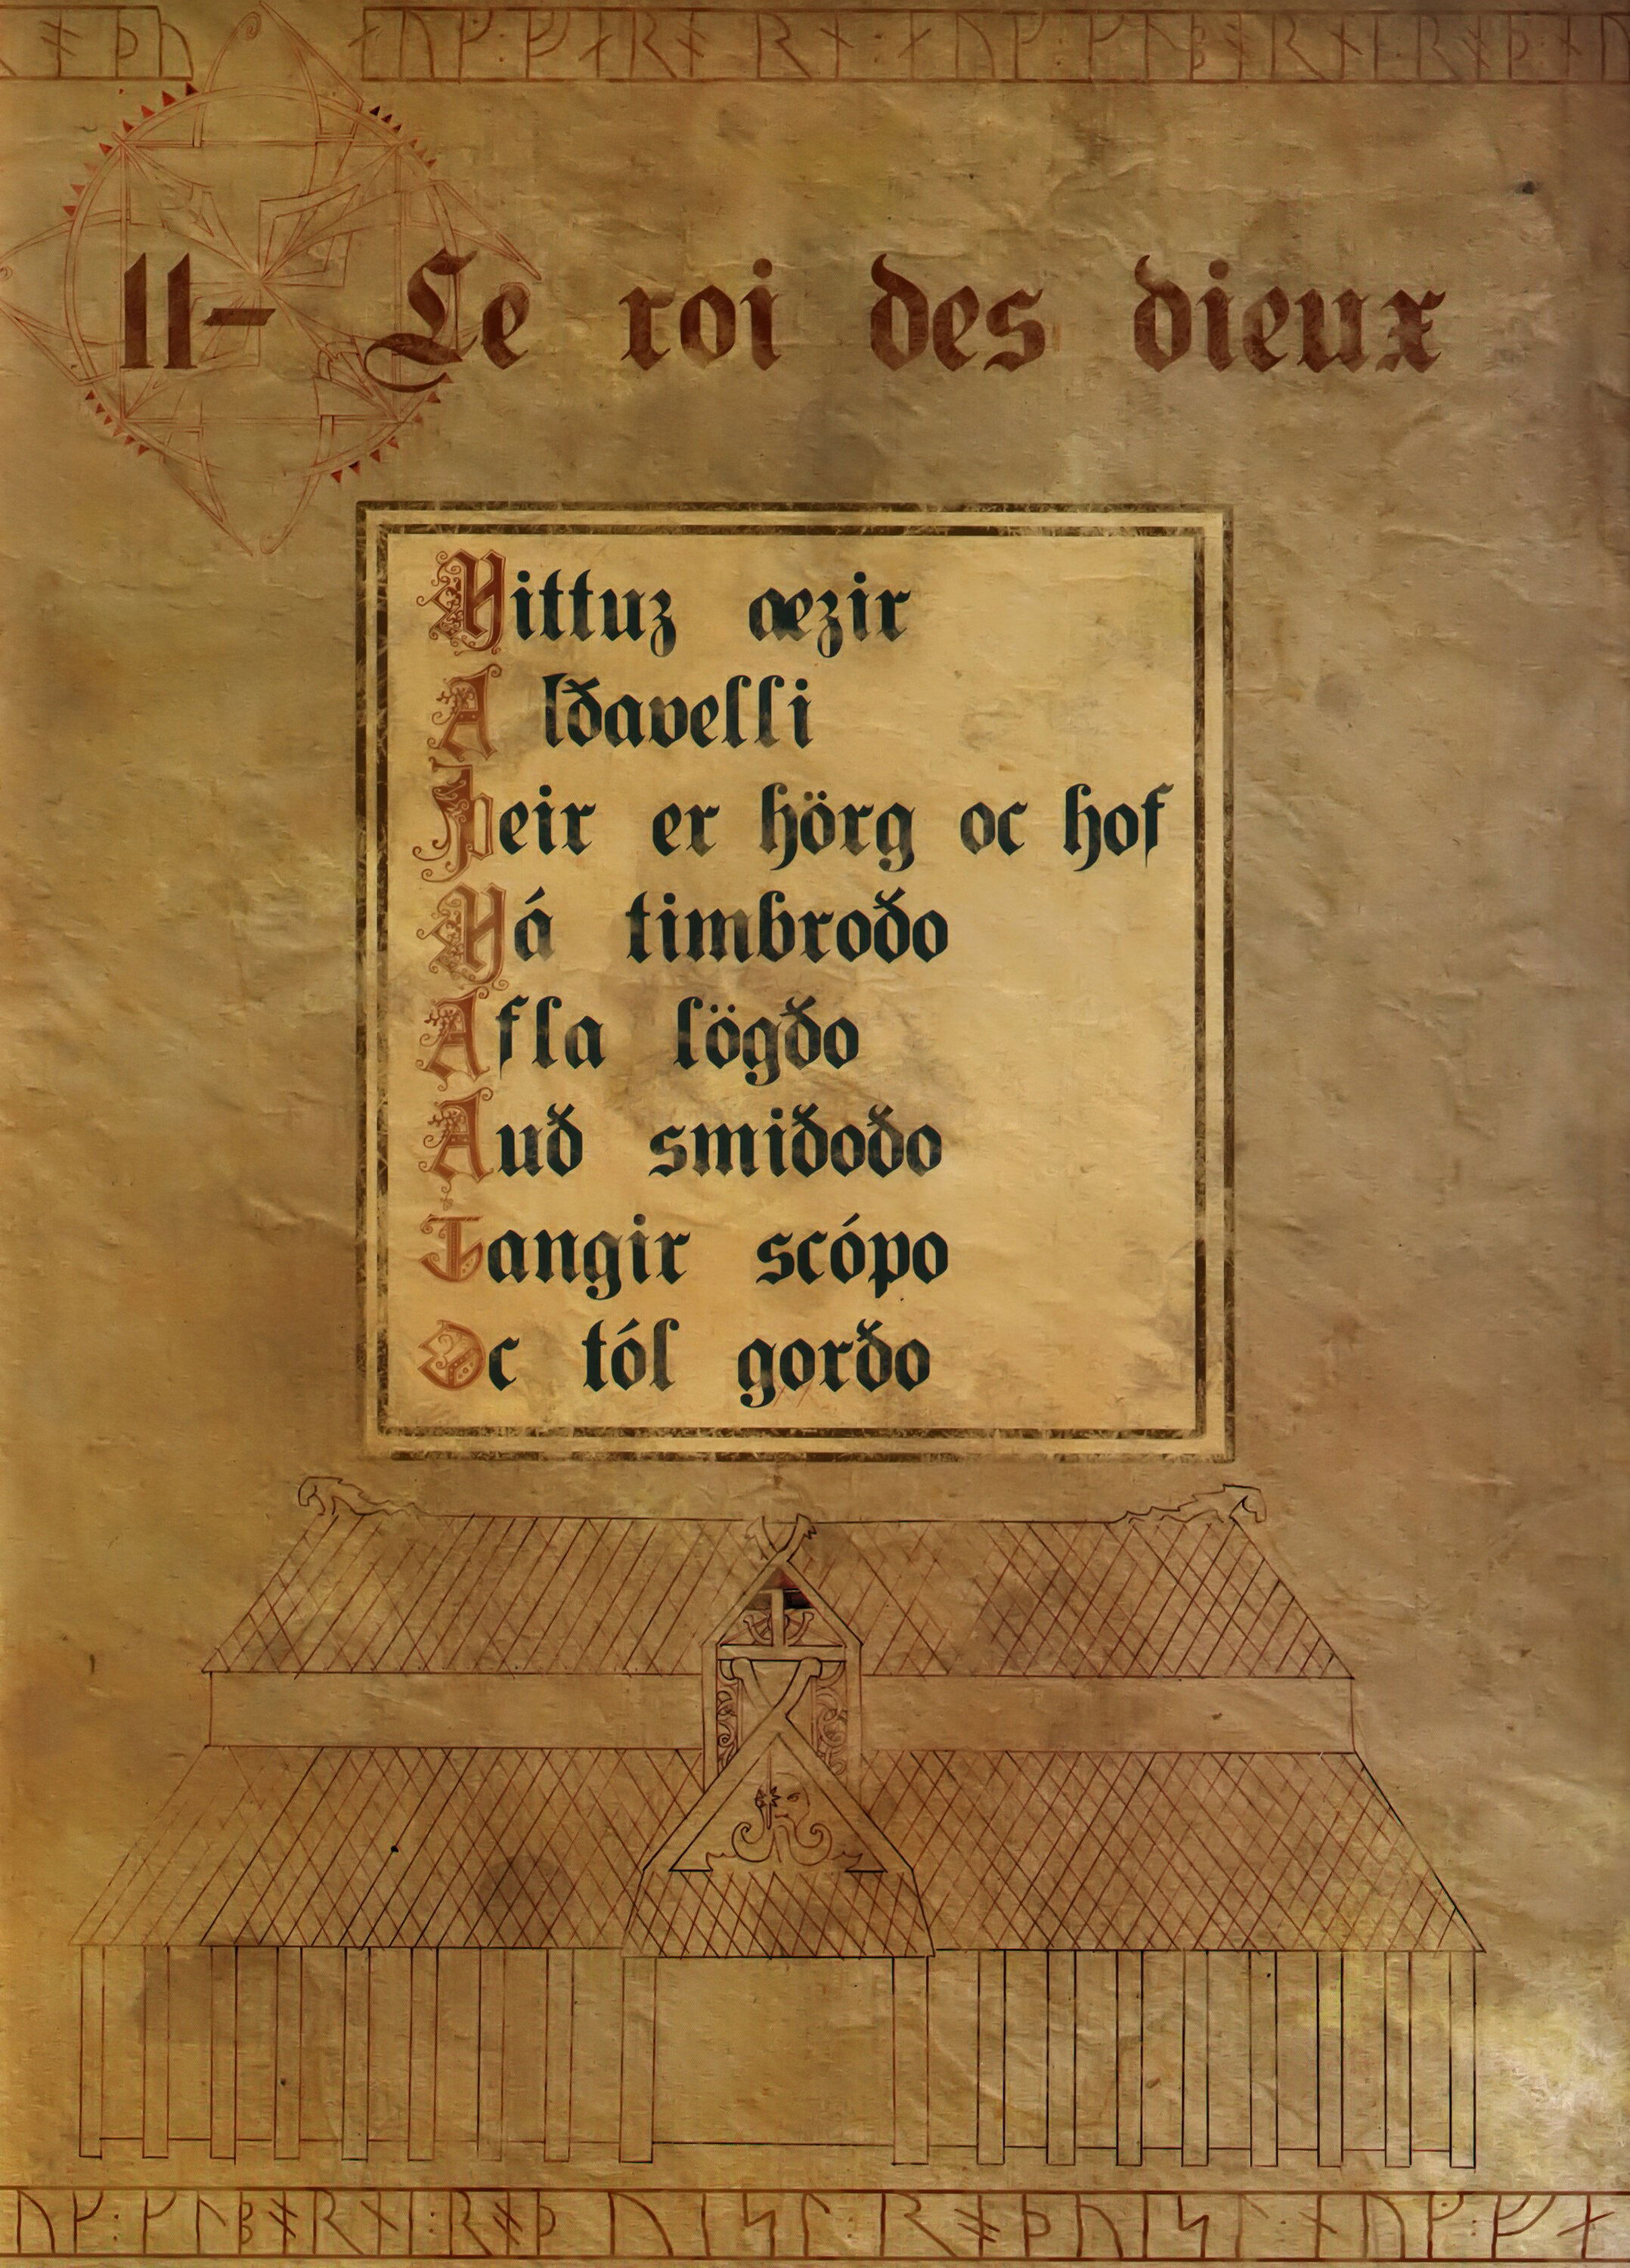 11- Le roi des dieux
Hittuz æzir
A Iðavelli
Þeir er hörg oc hof
Há timbroðo
Afla lögðo
Auð smiðoðo
Tangir scópo
Oc tól gorðo